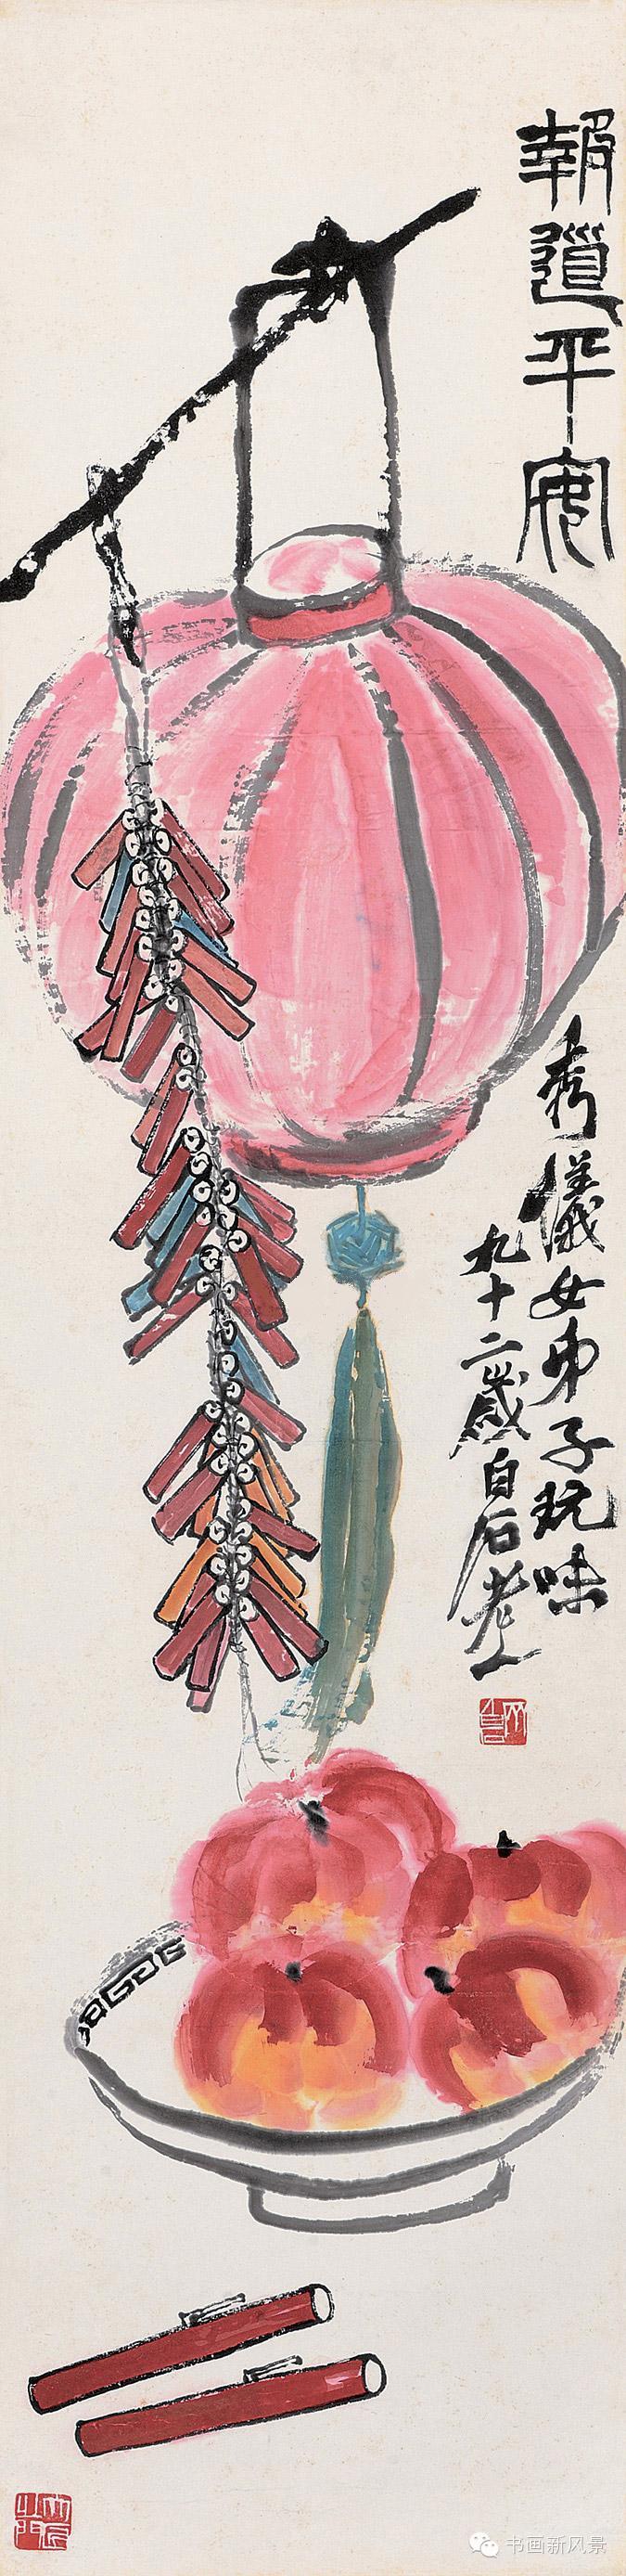 報道平安
秀儀女弟子玩味
九十二歲白石老人
白石
书画新风景